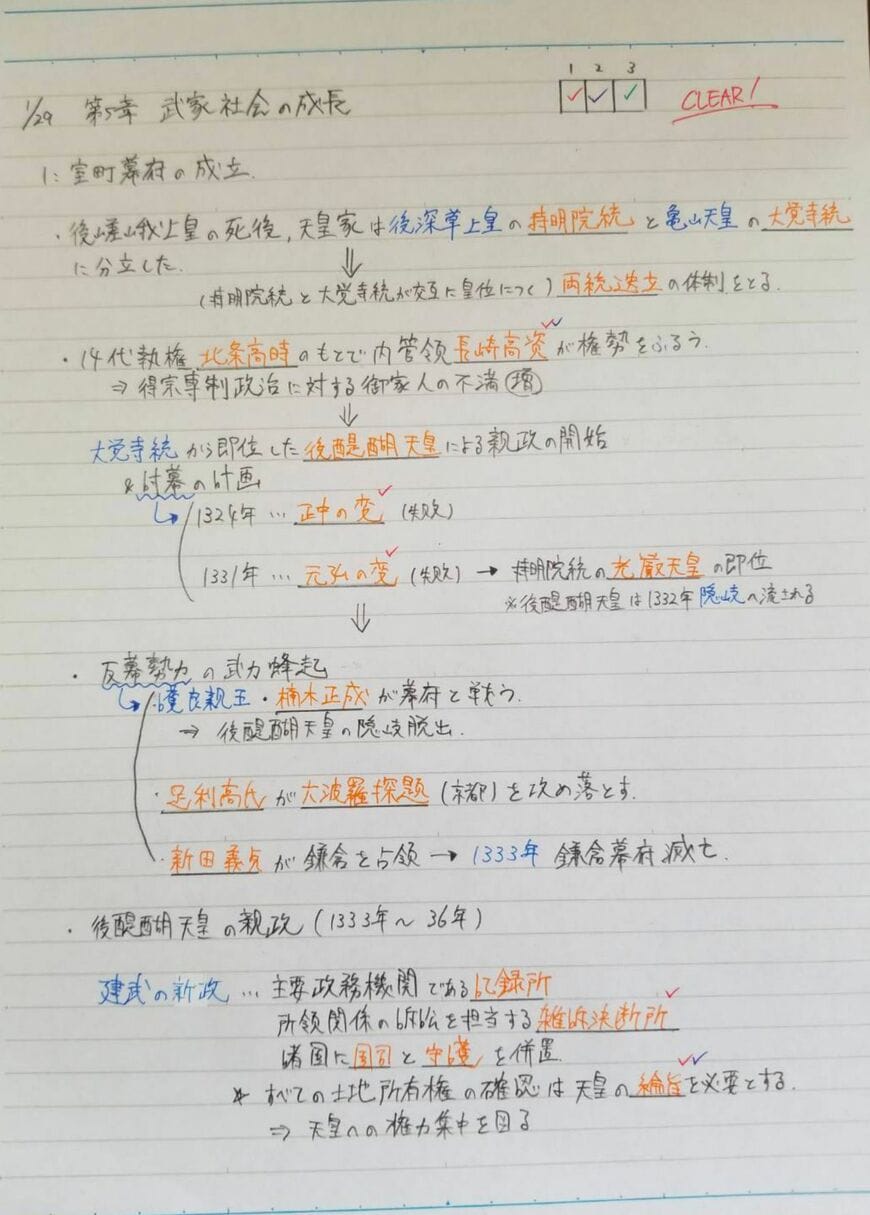 1 2 3
1/29 第5章 武家社会の成長 CLEAR!
1: 室町幕府の成立.
・後嵯峨上皇の死後, 天皇家は後深草上皇の持明院統と亀山天皇の大覚寺統
に分立した.
⇓
(持明院統と大覚寺統が交互に皇位につく) 両統迭立の体制をとる.
・14代執権 北条高時のもとで内管領長崎高資が権勢をふるう.
⇒ 得宗専制政治に対する御家人の不満 増
⇓
大覚寺統から即位した後醍醐天皇による親政の開始
& 討幕の計画
1324年 … 正中の変 (失敗)
1331年 … 元弘の変 (失敗) → 持明院統の光厳天皇の即位
※後醍醐天皇は1332年 隠岐へ流される
⇓
・反幕勢力の武力蜂起
・護良親王・楠木正成が幕府と戦う.
⇒ 後醍醐天皇の隠岐脱出.
・足利高氏が六波羅探題 (京都) を攻め落とす.
・新田義貞が鎌倉を占領 → 1333年 鎌倉幕府滅亡.
・後醍醐天皇の親政 (1333年〜36年)
建武の新政 … 主要政務機関である記録所
所領関係の訴訟を担当する雑訴決断所
諸国に国司と守護を併置.
* すべての土地所有権の確認は天皇の綸旨を必要とする.
⇒ 天皇への権力集中を図る